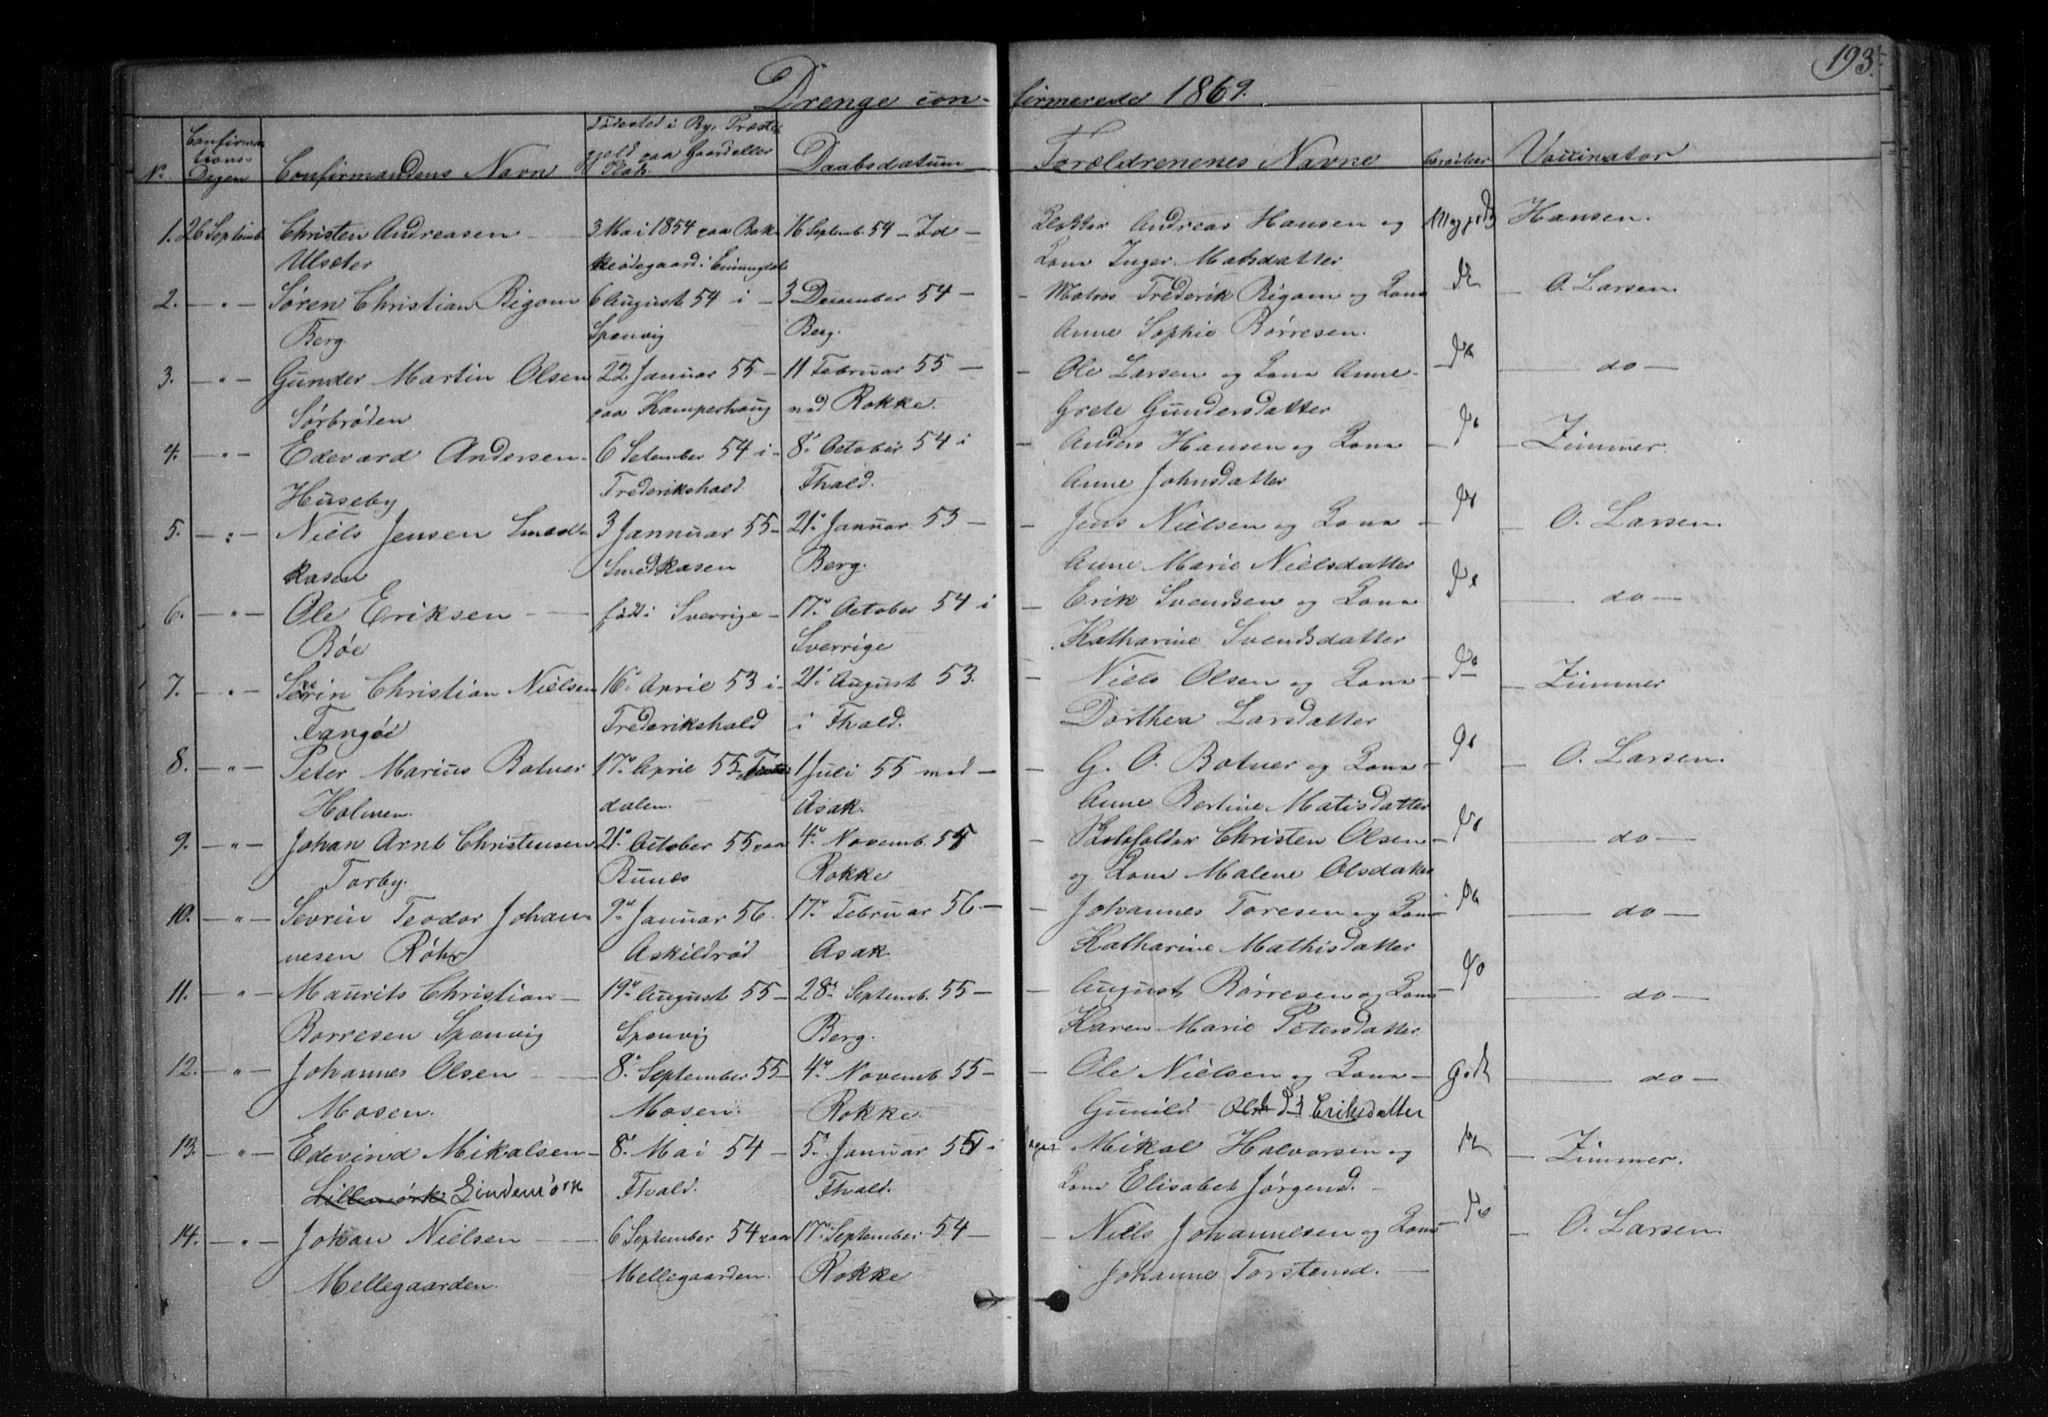 193.
Drenge confirmerede 1869.
No. Confirmations-Dagen Confirmandens Navn Fødested i By, Præstegjeld paa Gaard eller Plads. Daabsdatum Forældrenenes Navne Vaccinator
1. 26 Septemb. Christen Andreasen 3 Mai 1854 paa 16 Septemb. 54 – Id – Andreas Hansen og Hansen.
Ulseter Kona Inger Matsdatter
2. – " – Søren Christian Rigom 6 August 54 i – 3 December 54 – – Matros Frederik Rigom og Kona do – O. Larsen.
Berg. Sponvig Berg. Anne Sophie Børresen.
3. – " – Gunder Martin Olsen 22 Januar 55 – 11 Februar 55 – – Ole Larsen og Kona Anne do – do –
Sørbrøden paa Kamperhaug ved Rokke. Grete Gundersdatter
4. – " – Edevard Andersen – 6 Setember 54 i – 8. October 54 i – Anders Hansen og Kona – do – Zimmer.
Huseby Frederikshald Fhald. Anne Johnsdatter
5. – " – Niels Jensen Smedt- 3 Jannuar 55 – 21. Januar 55 – – Jens Nielsen og Kona – do – O. Larsen.
kasen Smedkasen Berg. Anne Marie Nielsdatter
6. – " – Ole Eriksen – født i Sverrige – 17. October 54 i – Erik Svendsen og Kona do – do –
Bøe Sverrige Katharine Svendsdatter
7. – " – Sevrin Christian Nielsen 16. April 53 i – 21. August 53. – Niels Olsen og Kona – do – Zimmer
Tangøe Frederikshald i Fhald. Dorthea Larsdatter
8. – " – Peter Marius Botner 17. April 55 1 Juli 55 ved – – G. O. Botner og Kona – do – O. Larsen.
Holmen. dalen. Asak. Anne Bertine Matisdatter
9. – " – Johan Arnt Christensen 21. October 55 paa 4. Novemb. 55 – Christen Olsen – do – do –
Torby. Buнes Rokke og Kona Malene Olsdatter
10. – " – Sevrin Teodor Johan- 9. Januar 56. 17. Februar 56. – – Johannes Toresen og Kona do – do –
nesen Röhr Askildrød Asak. Katharine Mathisdatter
11. – " – Maurits Christian – 19. August 55 – 28. Septemb. 55 – – August Børresen og Kona do – do –
Borresen Sponvig Sponvig Berg. Karen Marie Petersdatter
12. – " – Johannes Olsen 8. September 55 – 4. Novemb. 55 – – Ole Nielsen og Kona – godt – do –
Mosen. Mosen. Rokke. Gunild Eriksdatter
13. – " – Edevind Mikalsen – 8. Mai 54 – 5. Januar 55 i Mikal Halvorsen og – Zimmer.
Lillemörk Lindemörk Fhald. Fhald. Kona Elisabet Jørgensd. –
14. – " – Johan Nielsen – 6 September 54 paa 17. September 54 – – Niels Johannesen og Kona – do – O. Larsen.
Mellegaarden. Mellegaarden. Rokke Johanne Torstensd. –